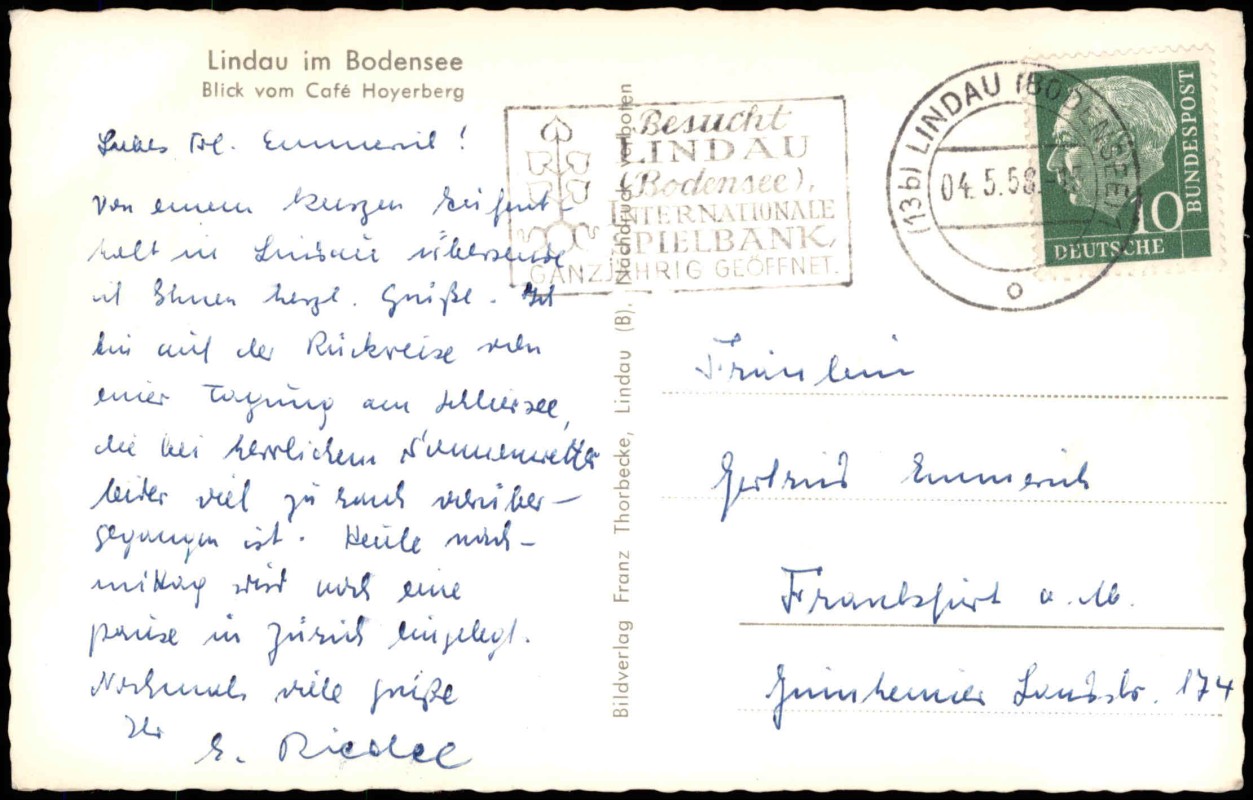 Lindau im Bodensee
Blick vom Café Hoyerberg
Liebes Frl. Emmerich!
Von einem kurzen Aufent-
halt in Lindau übersende
ich Ihnen herzl. Grüße. Ich
bin auf der Rückreise von
einer Tagung am Schliersee,
die bei herrlichem Sonnenwetter
leider viel zu rasch vorüber-
gegangen ist. Heute nach-
mittag wird noch eine
Pause in Zürich eingelegt.
Nochmals viele Grüße
Ihr
E. Riedel
Bildverlag Franz Thorbecke, Lindau (B), Nachdruck verboten
Besucht
LINDAU
(Bodensee),
INTERNATIONALE
SPIELBANK,
GANZJÄHRIG GEÖFFNET.
(13b) LINDAU (BODENSEE)
04.5.58
10
DEUTSCHE
BUNDESPOST
Fräulein
Gertrud Emmerich
Frankfurt a.M.
Ginnheimer Landstr. 174